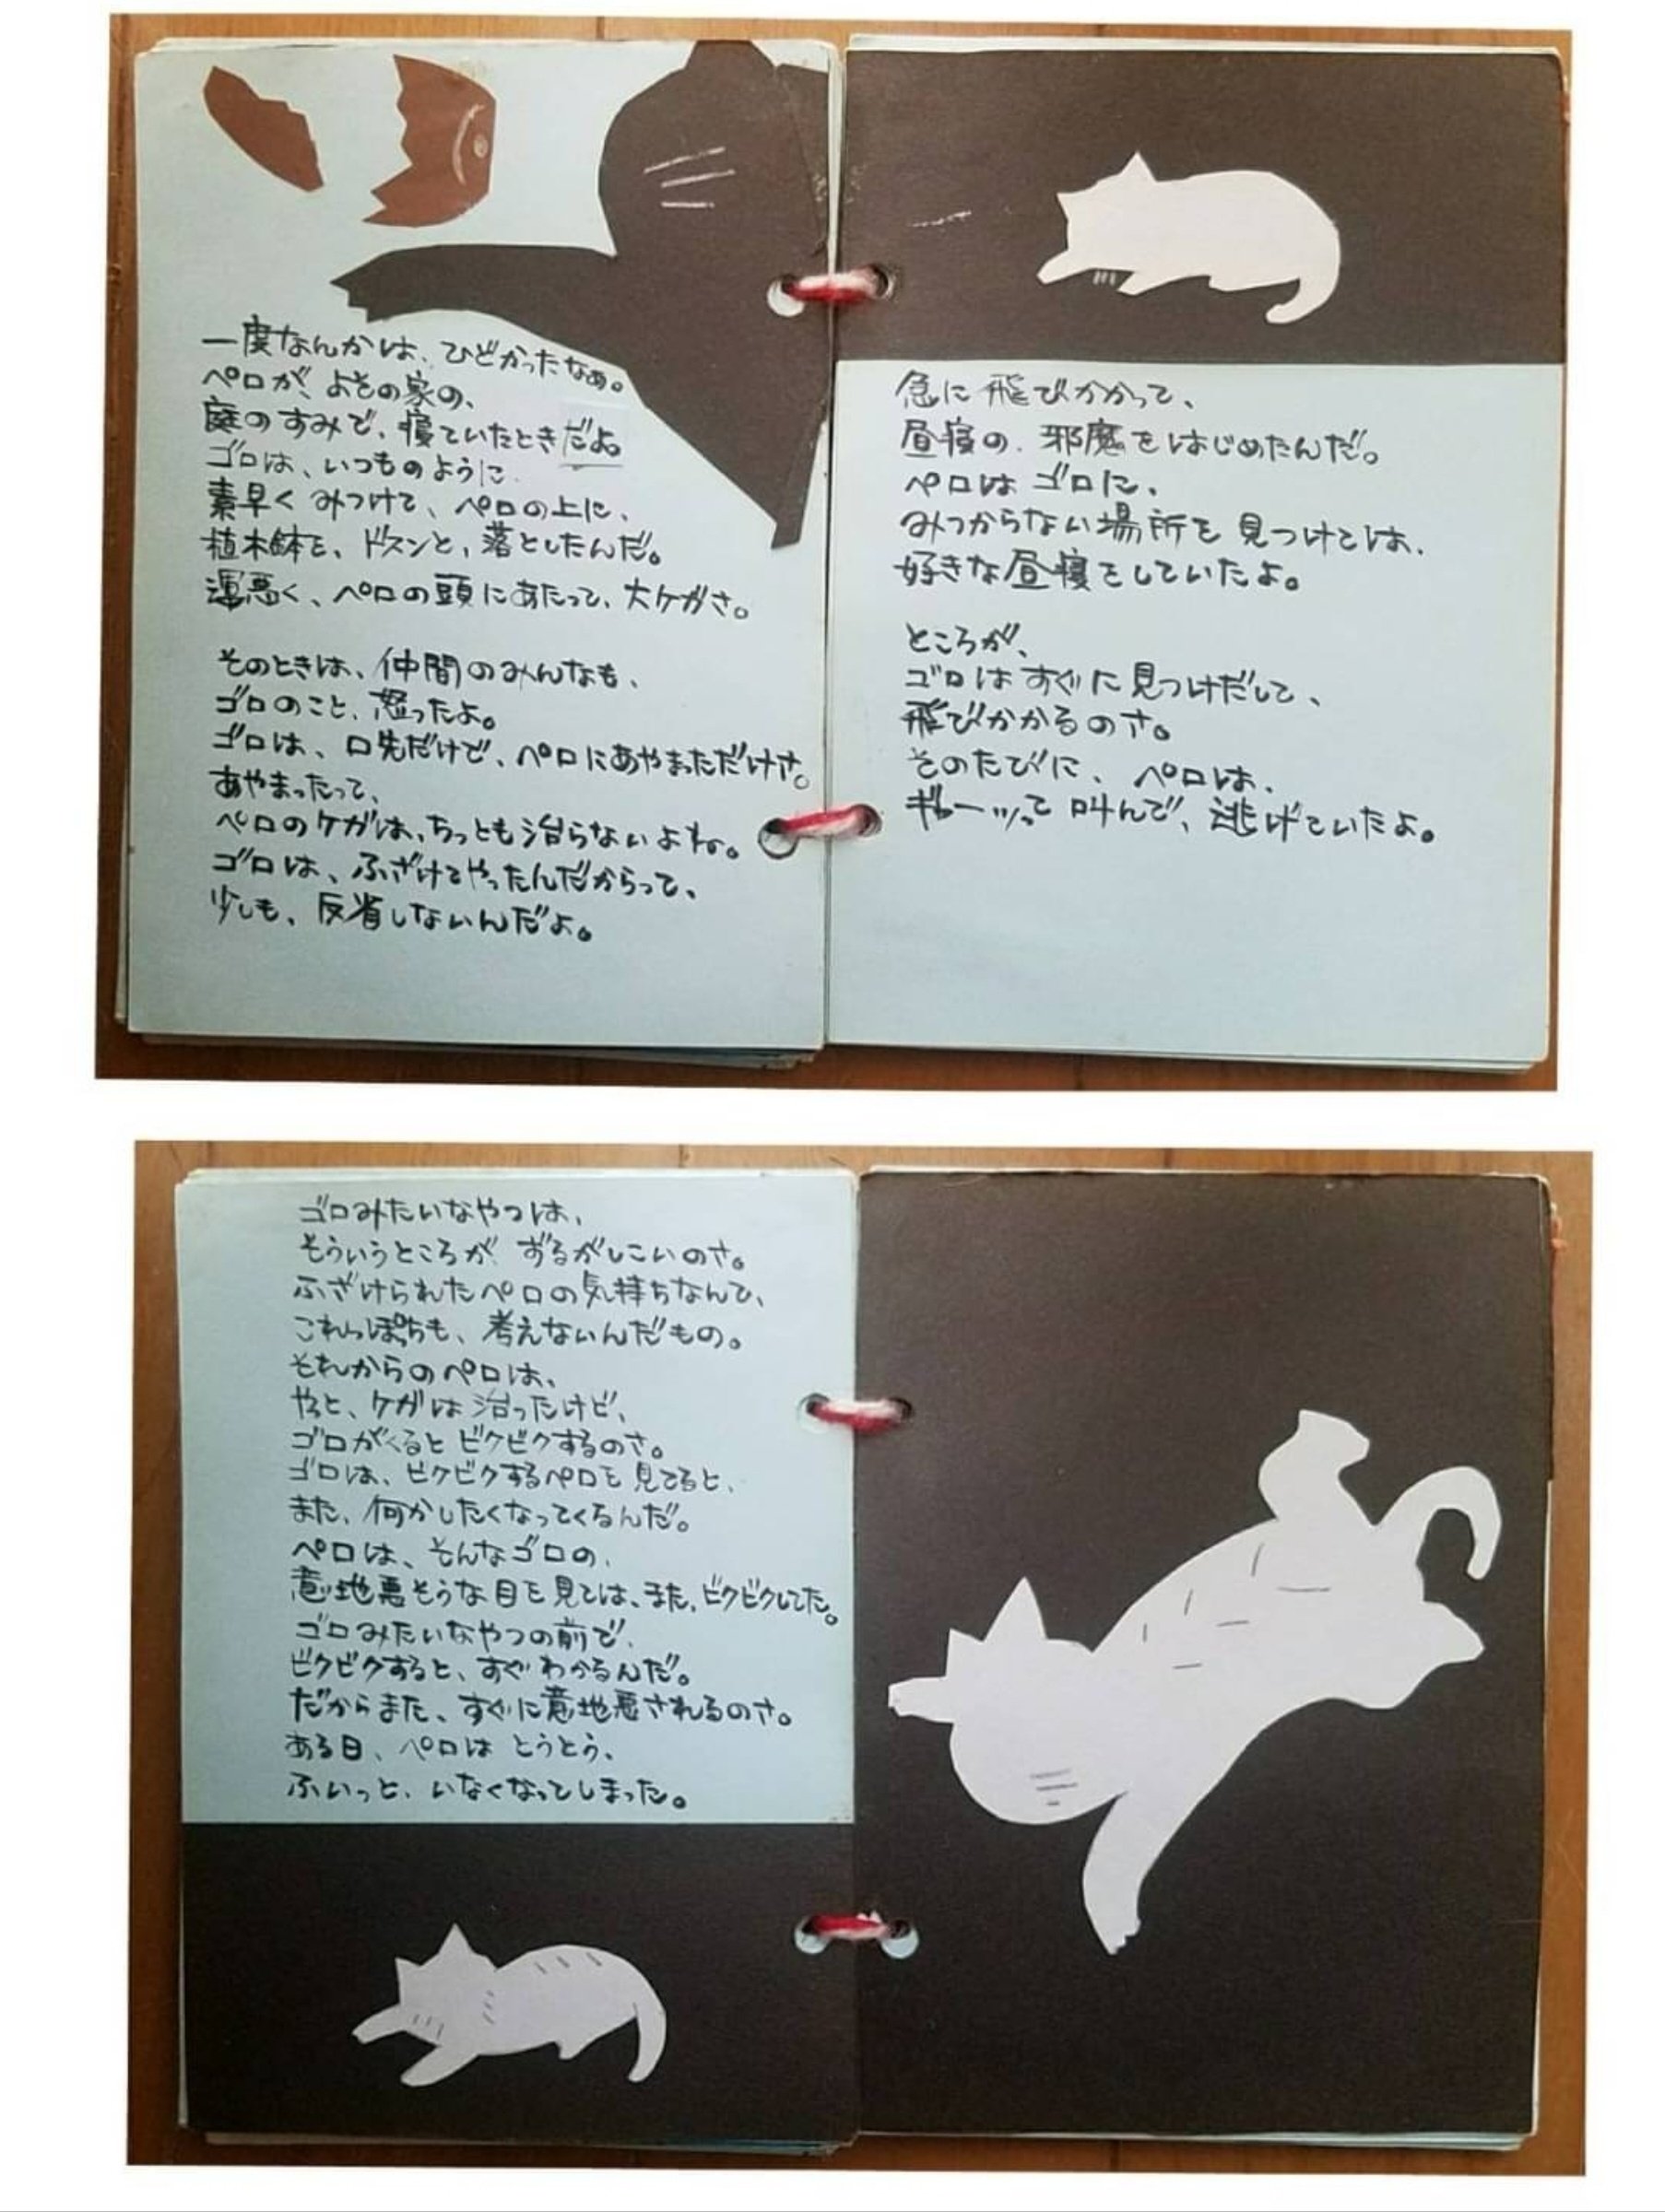 一度なんかは、ひどかったなぁ。
ペロが、よその家の、
庭のすみで、寝ていたときだよ。
ゴロは、いつものように
素早くみつけて、ペロの上に、
植木鉢を、ドスンと、落としたんだ。
運悪く、ペロの頭にあたって、大ケガさ。
そのときは、仲間のみんなも、
ゴロのこと、怒ったよ。
ゴロは、口先だけで、ペロにあやまっただけさ。
あやまったって、
ペロのケガは、ちっとも治らないよね。
ゴロは、ふざけてやったんだからって、
少しも、反省しないんだよ。
急に飛びかかって、
昼寝の、邪魔をはじめたんだ。
ペロはゴロに、
みつからない場所を見つけては、
好きな昼寝をしていたよ。
ところが、
ゴロはすぐに見つけだして、
飛びかかるのさ。
そのたびに、ペロは、
ギャーッって叫んで、逃げていたよ。
ゴロみたいなやつは、
そういうところが、ずるがしこいのさ。
ふざけられたペロの気持ちなんて、
これっぽっちも、考えないんだもの。
それからのペロは、
やっと、ケガは治ったけど、
ゴロがくるとビクビクするのさ。
ゴロは、ビクビクするペロを見てると、
また、何かしたくなってくるんだ。
ペロは、そんなゴロの、
意地悪そうな目を見ては、また、ビクビクしてた。
ゴロみたいなやつの前で、
ビクビクすると、すぐわかるんだ。
だからまた、すぐに意地悪されるのさ。
ある日、ペロはとうとう、
ふいっと、いなくなってしまった。